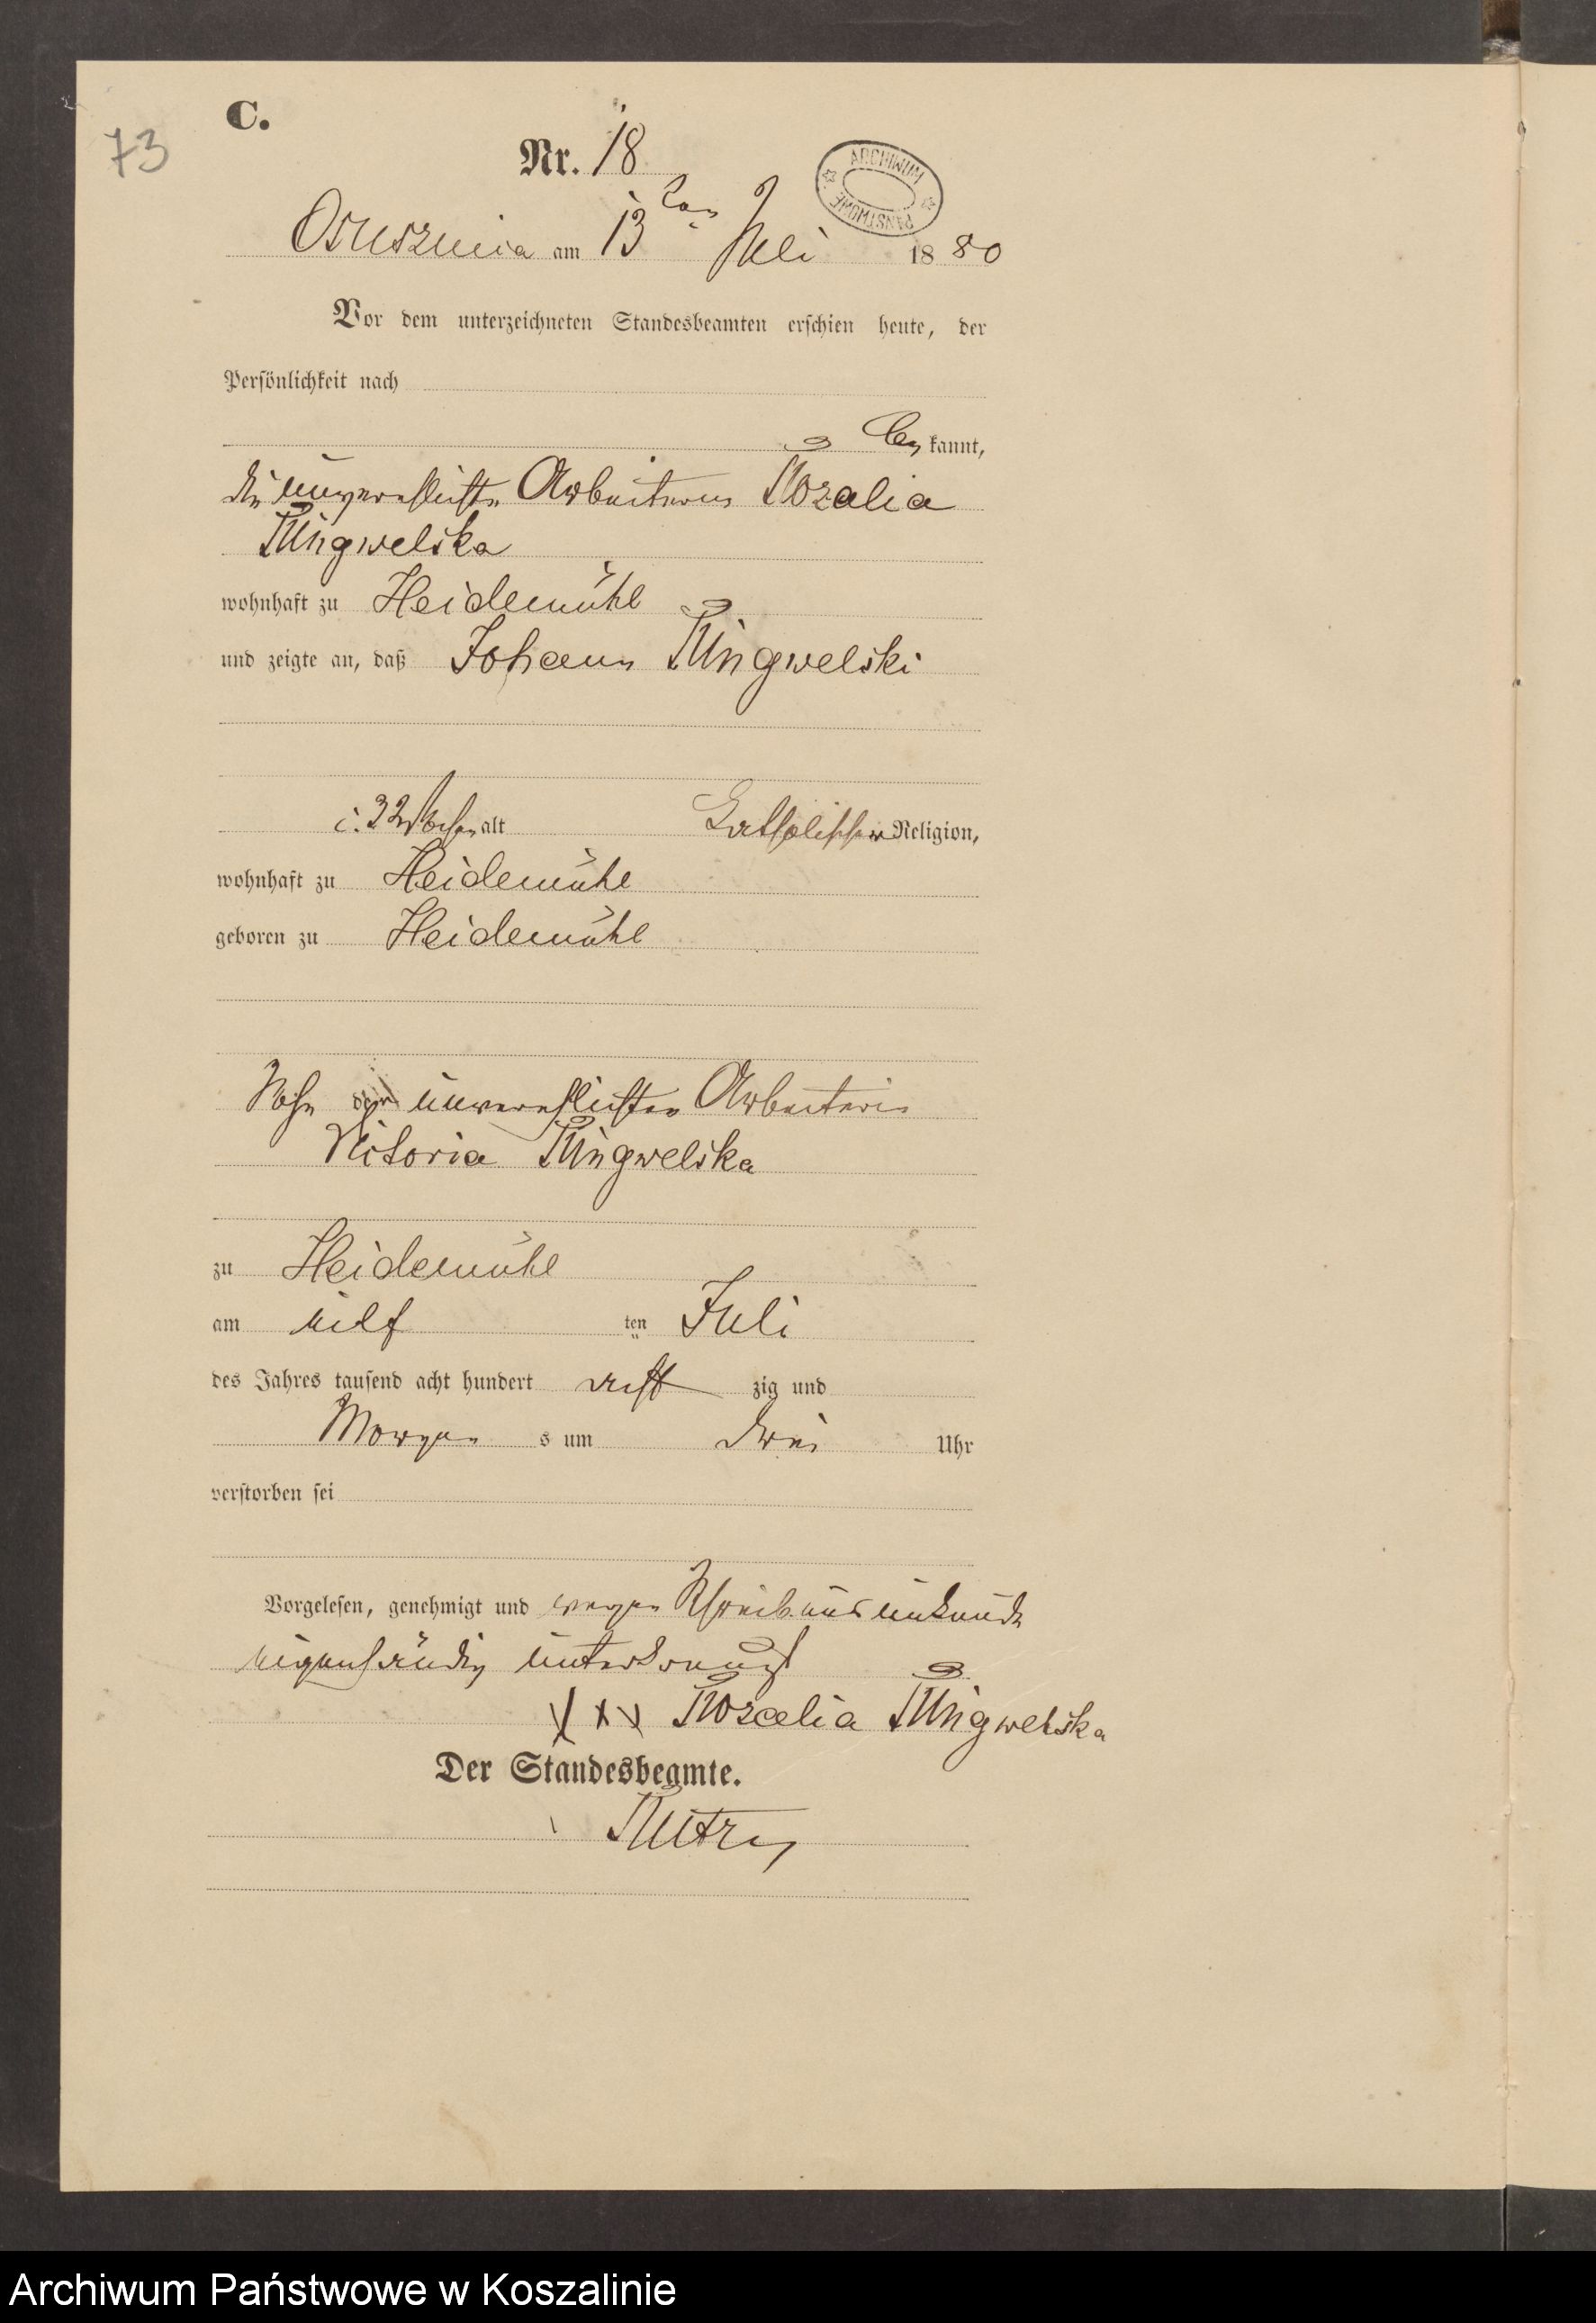 C.
73
Nr. 18
Osuszniça am 13ten Juli 1880
Vor dem unterzeichneten Standesbeamten erschien heute, der
Persönlichkeit nach
be kannt,
die unverehelichte Arbeiterin Rozalia
Ringwelska
wohnhaft zu Heidemühl
und zeigte an, daß Johann Ringwelski
alt katholischer Religion,
wohnhaft zu Heidemühl
geboren zu Heidemühl
Sohn der unverehelichten Arbeiterin
Ringwelska
zu Heidemühl
am eilf ten Juli
des Jahres tausend acht hundert acht zig und
Morgen s um drei Uhr
verstorben sei
Vorgelesen, genehmigt und wegen Schreibensunkunde
eigenhändig unterkreuzt
XXX Rozalia Ringwelska
Der Standesbeamte.
ARCHIWUM PAŃSTWOWE
Archiwum Państwowe w Koszalinie